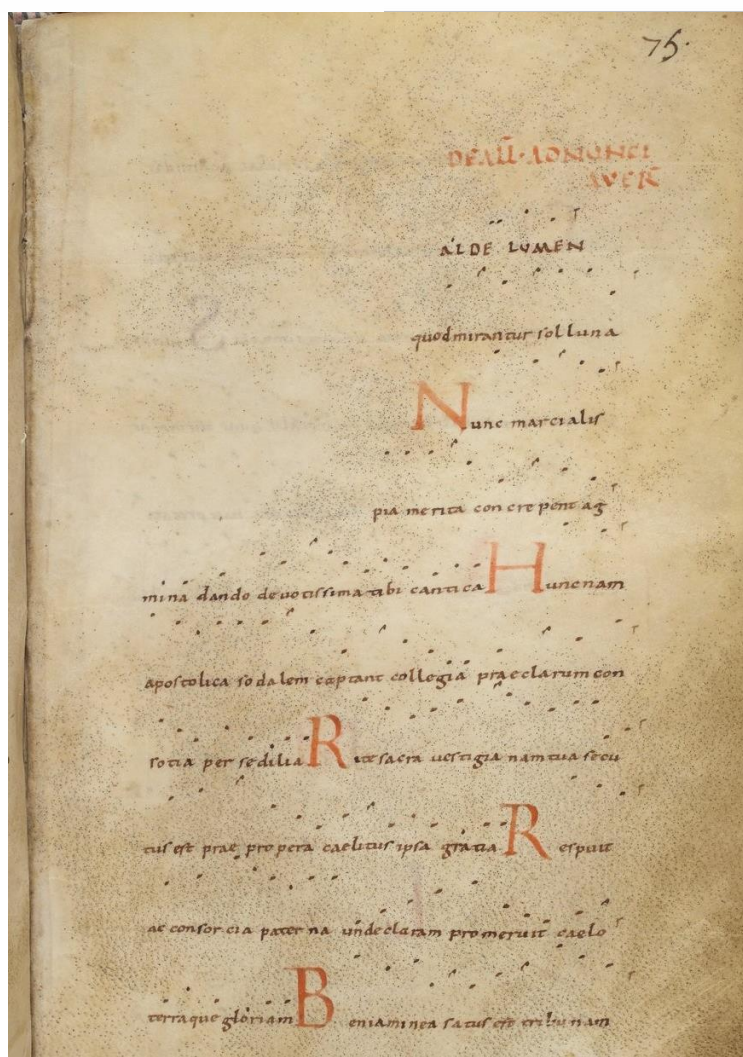 75.
DE ALL· ADNUNCI
AVER
ALDE LUMEN
quod mirantur sol luna
Nunc marcialis
pia merita con cre pent ag
mina dando devotissima tibi cantica Hunc nam
apostolica sodalem captant collegia praeclarum con
sotia per sedilia Rite sacra vestigia nam tua secu
tus est prae propera caelitus ipsa gratia Respuit
ac consorcia paterna unde claram promeruit caelo
terraque gloriam Beniaminea satus est tribu nam